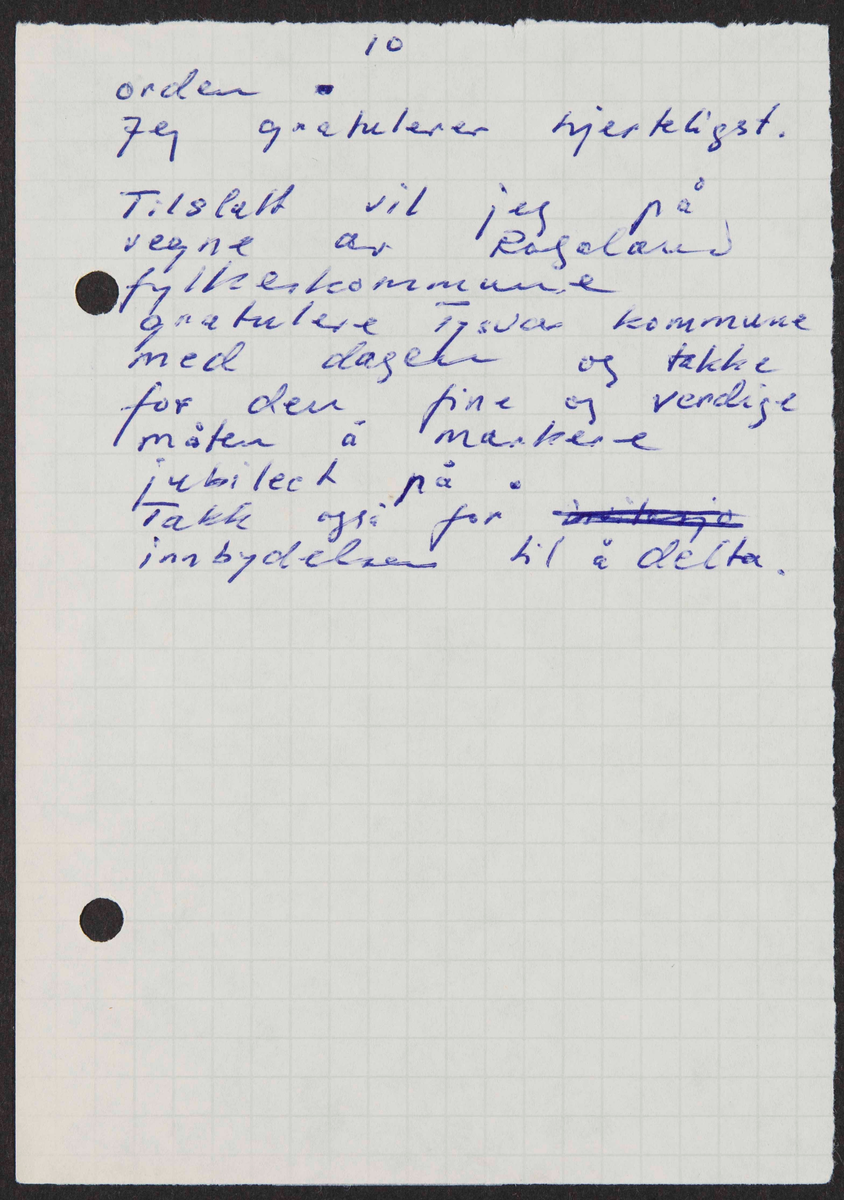 10
orden .
Jeg gratulerer hjerteligst.
Tilslutt vil jeg på
vegne av Rogaland
fylkeskommune
gratulere Tysvær kommune
med dagen og takke
for den fine og verdige
måten å markere
jubileet på .
Takk også for
innbydelsen til å delta.